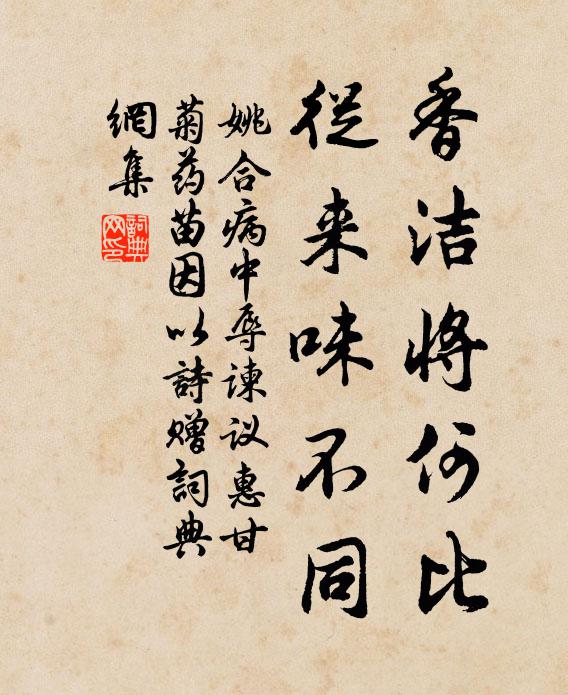 香洁将何比
從来味不同
姚合病中辱諫议惠甘
菊药苗因以詩赠詞典
網集
詞典网印